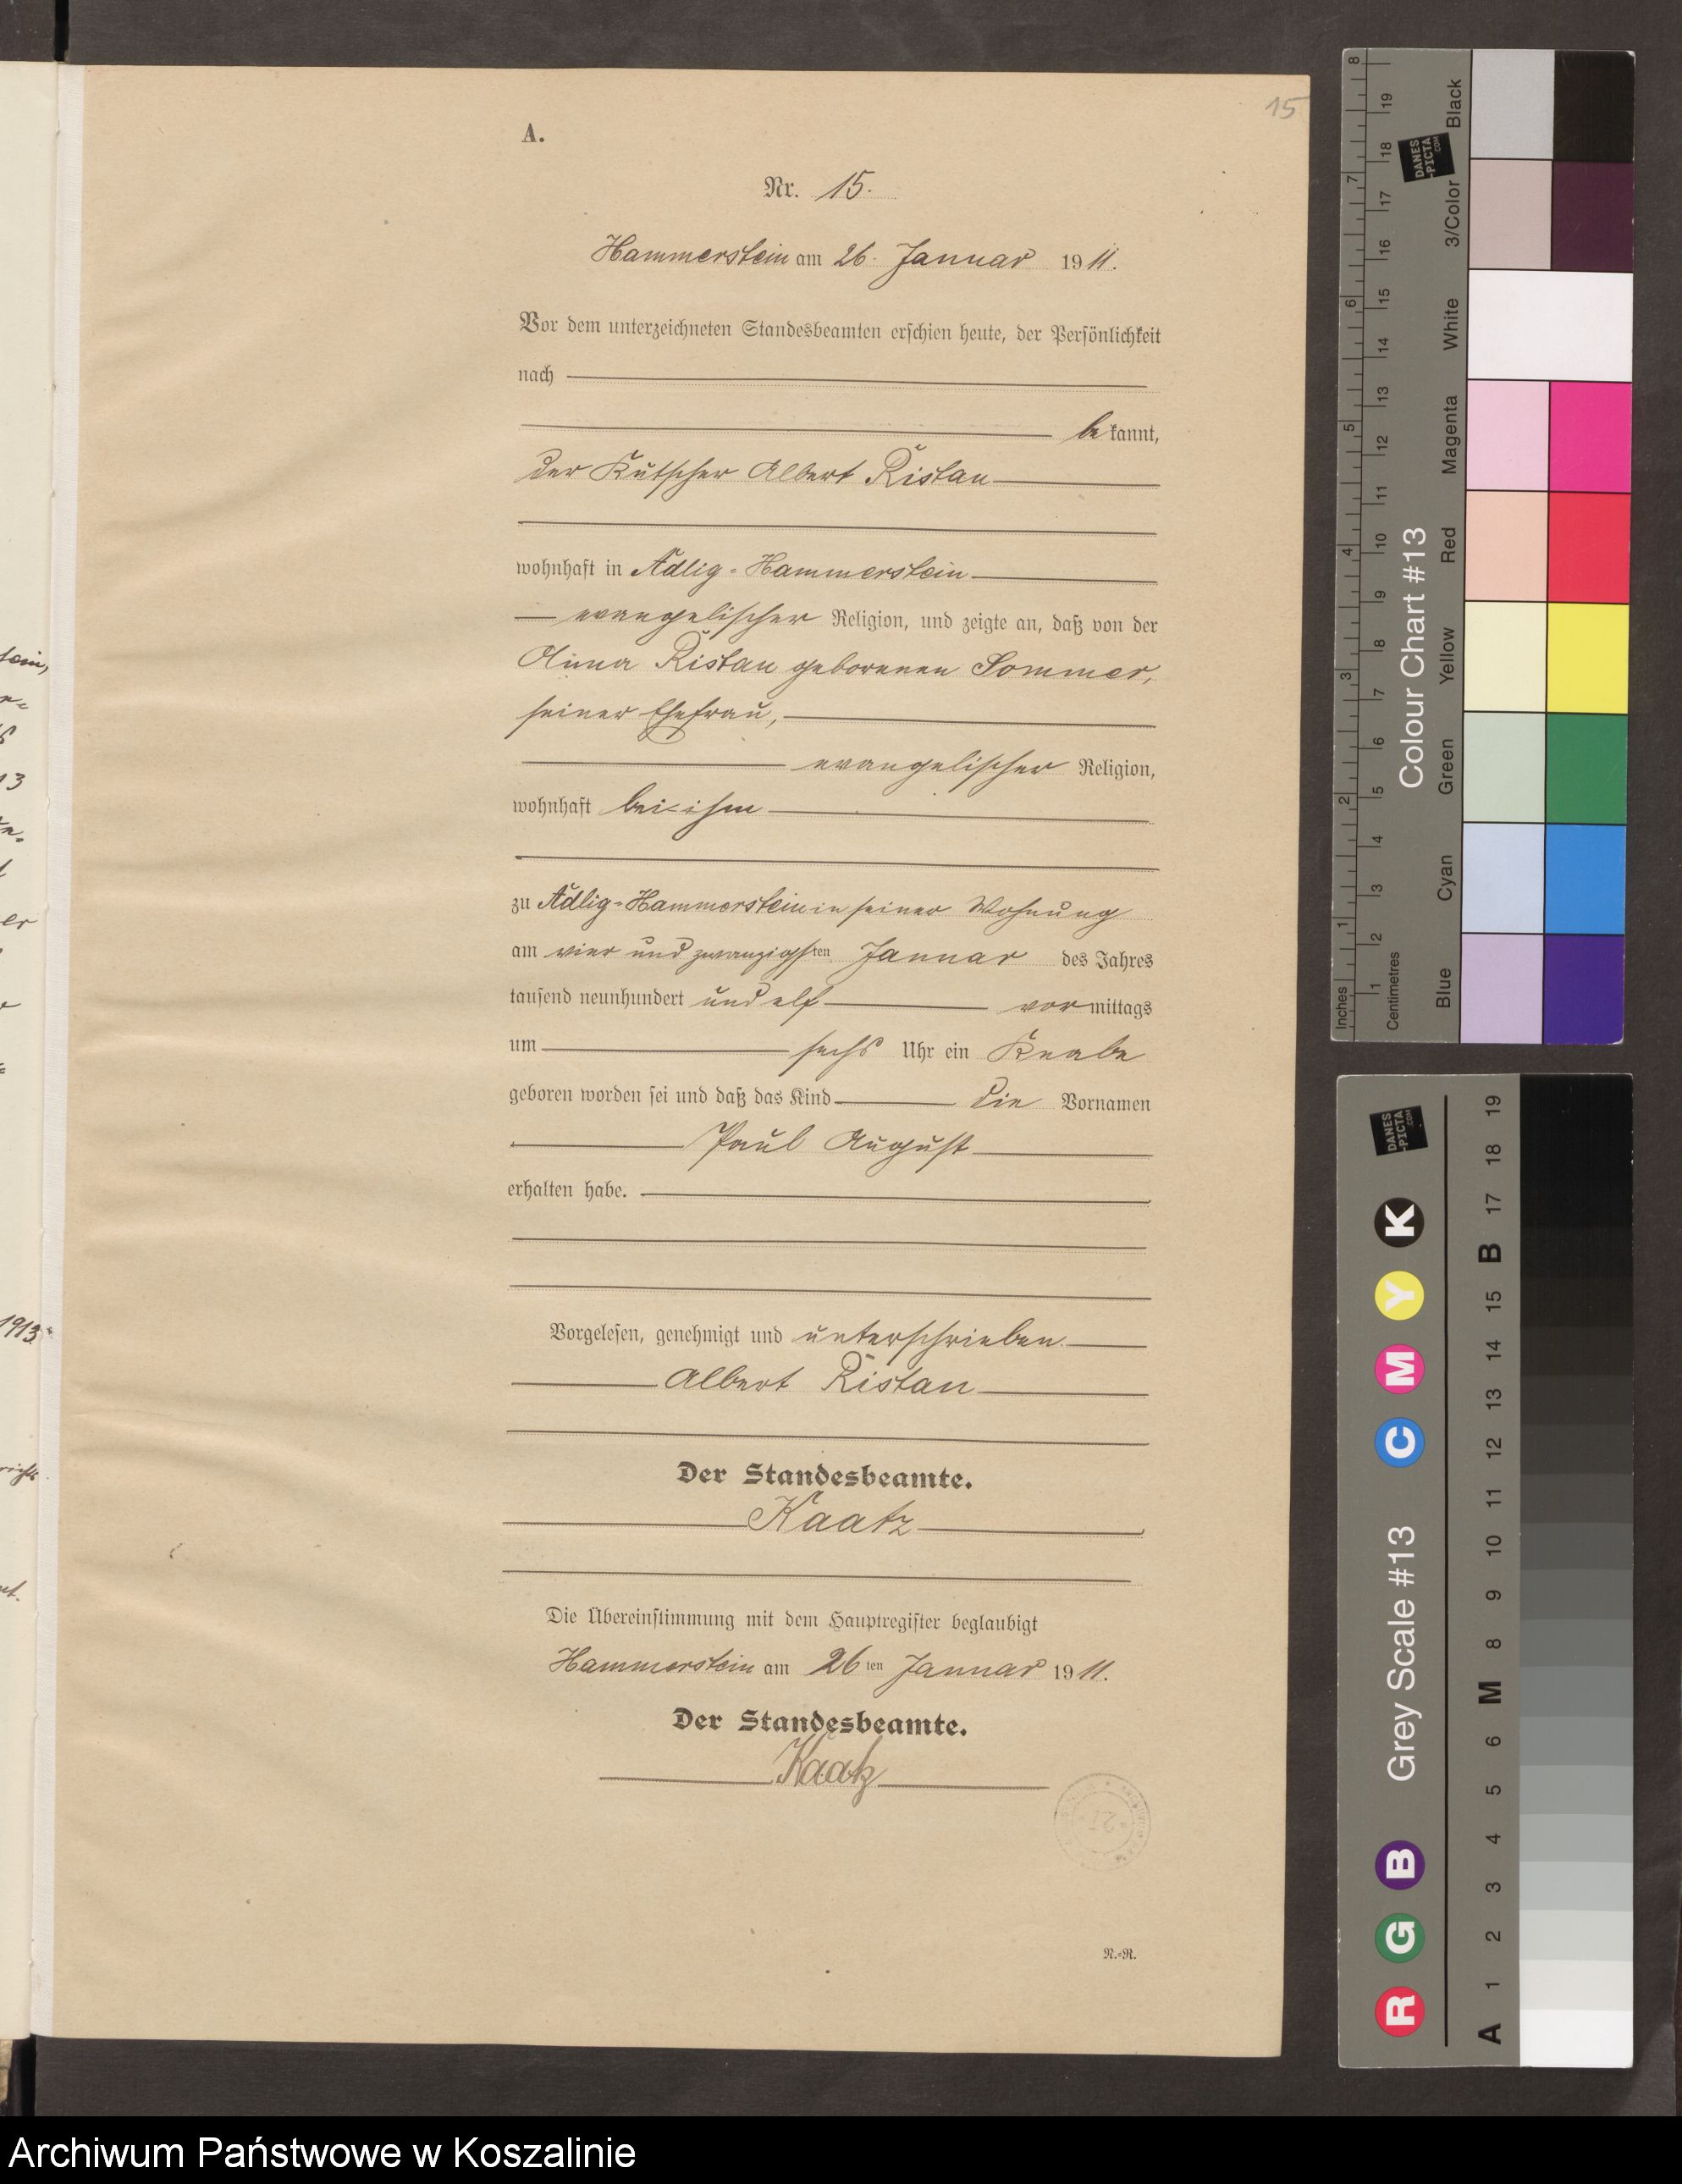 15
A.
Nr. 15.
Hammerstein am 26. Januar 1911.
Vor dem unterzeichneten Standesbeamten erschien heute, der Persönlichkeit
nach
bekannt,
der Kutscher Albert Ristau
wohnhaft in Adlig-Hammerstein
evangelischer Religion, und zeigte an, daß von der
Ristau geborenen Sommer,
seiner Ehefrau,
evangelischer Religion,
wohnhaft bei ihm
zu Adlig-Hammerstein in seiner Wohnung
am vier und zwanzigsten Januar des Jahres
tausend neunhundert und elf vormittags
um sechs Uhr ein Knabe
geboren worden sei und daß das Kind die Vornamen
Paul August
erhalten habe.
Vorgelesen, genehmigt und unterschrieben.
Albert Ristau
Der Standesbeamte.
Kaatz
Die Übereinstimmung mit dem Hauptregister beglaubigt
Hammerstein am 26ten Januar 1911.
Der Standesbeamte.
Kaatz
R.=R.
1913
Colour Chart #13
Inches
Centimetres
Blue
Cyan
Green
Yellow
Red
Magenta
White
3/Color
Black
DANES
-PICTA
.COM
1 2 3 4 5 6 7 8
1 2 3 4 5 6 7 8 9 10 11 12 13 14 15 16 17 18 19
Grey Scale #13
DANES
-PICTA
.COM
R G B C M Y K
A 1 2 3 4 5 6 M 8 9 10 11 12 13 14 15 B 17 18 19
Archiwum Państwowe w Koszalinie